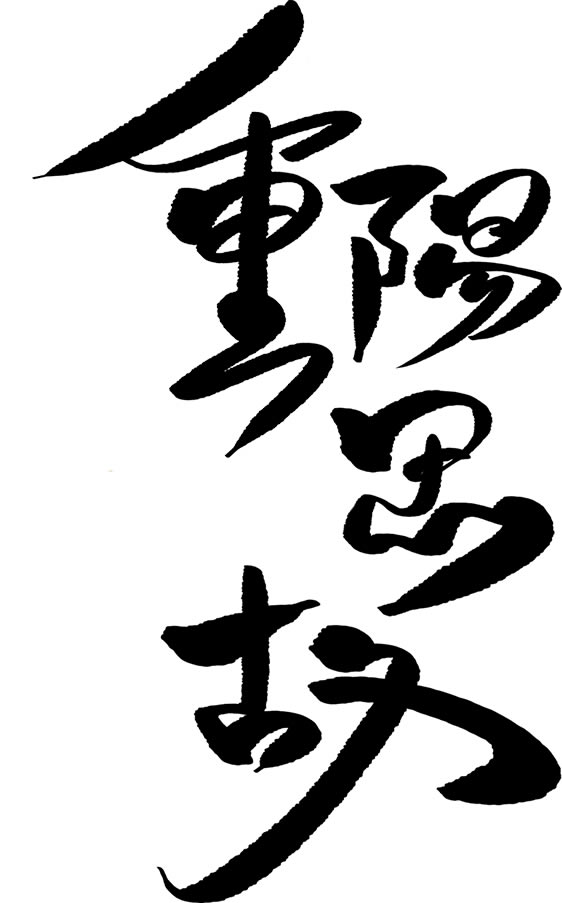 重陽思故